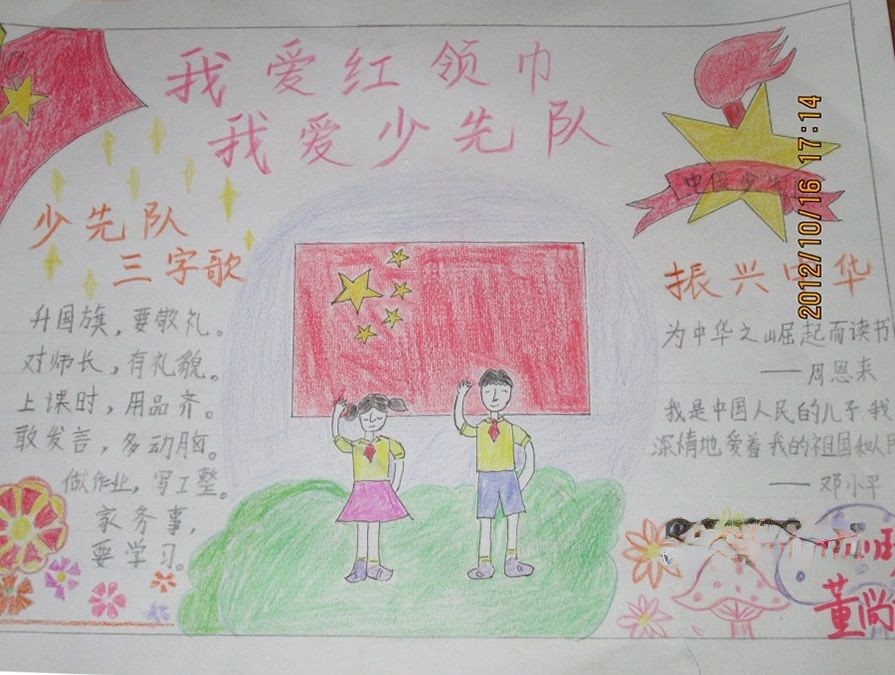 我爱红领巾
我爱少先队
少先队
三字歌
升国旗，要敬礼。
对师长，有礼貌。
上课时，用品齐。
敢发言，多动脑。
做作业，写工整。
家务事，
要学习。
振兴中华
为中华之崛起而读书
——周恩来
我是中国人民的儿子 我
深情地爱着我的祖国和人民
——邓小平
董尚
2012/10/16 17:14